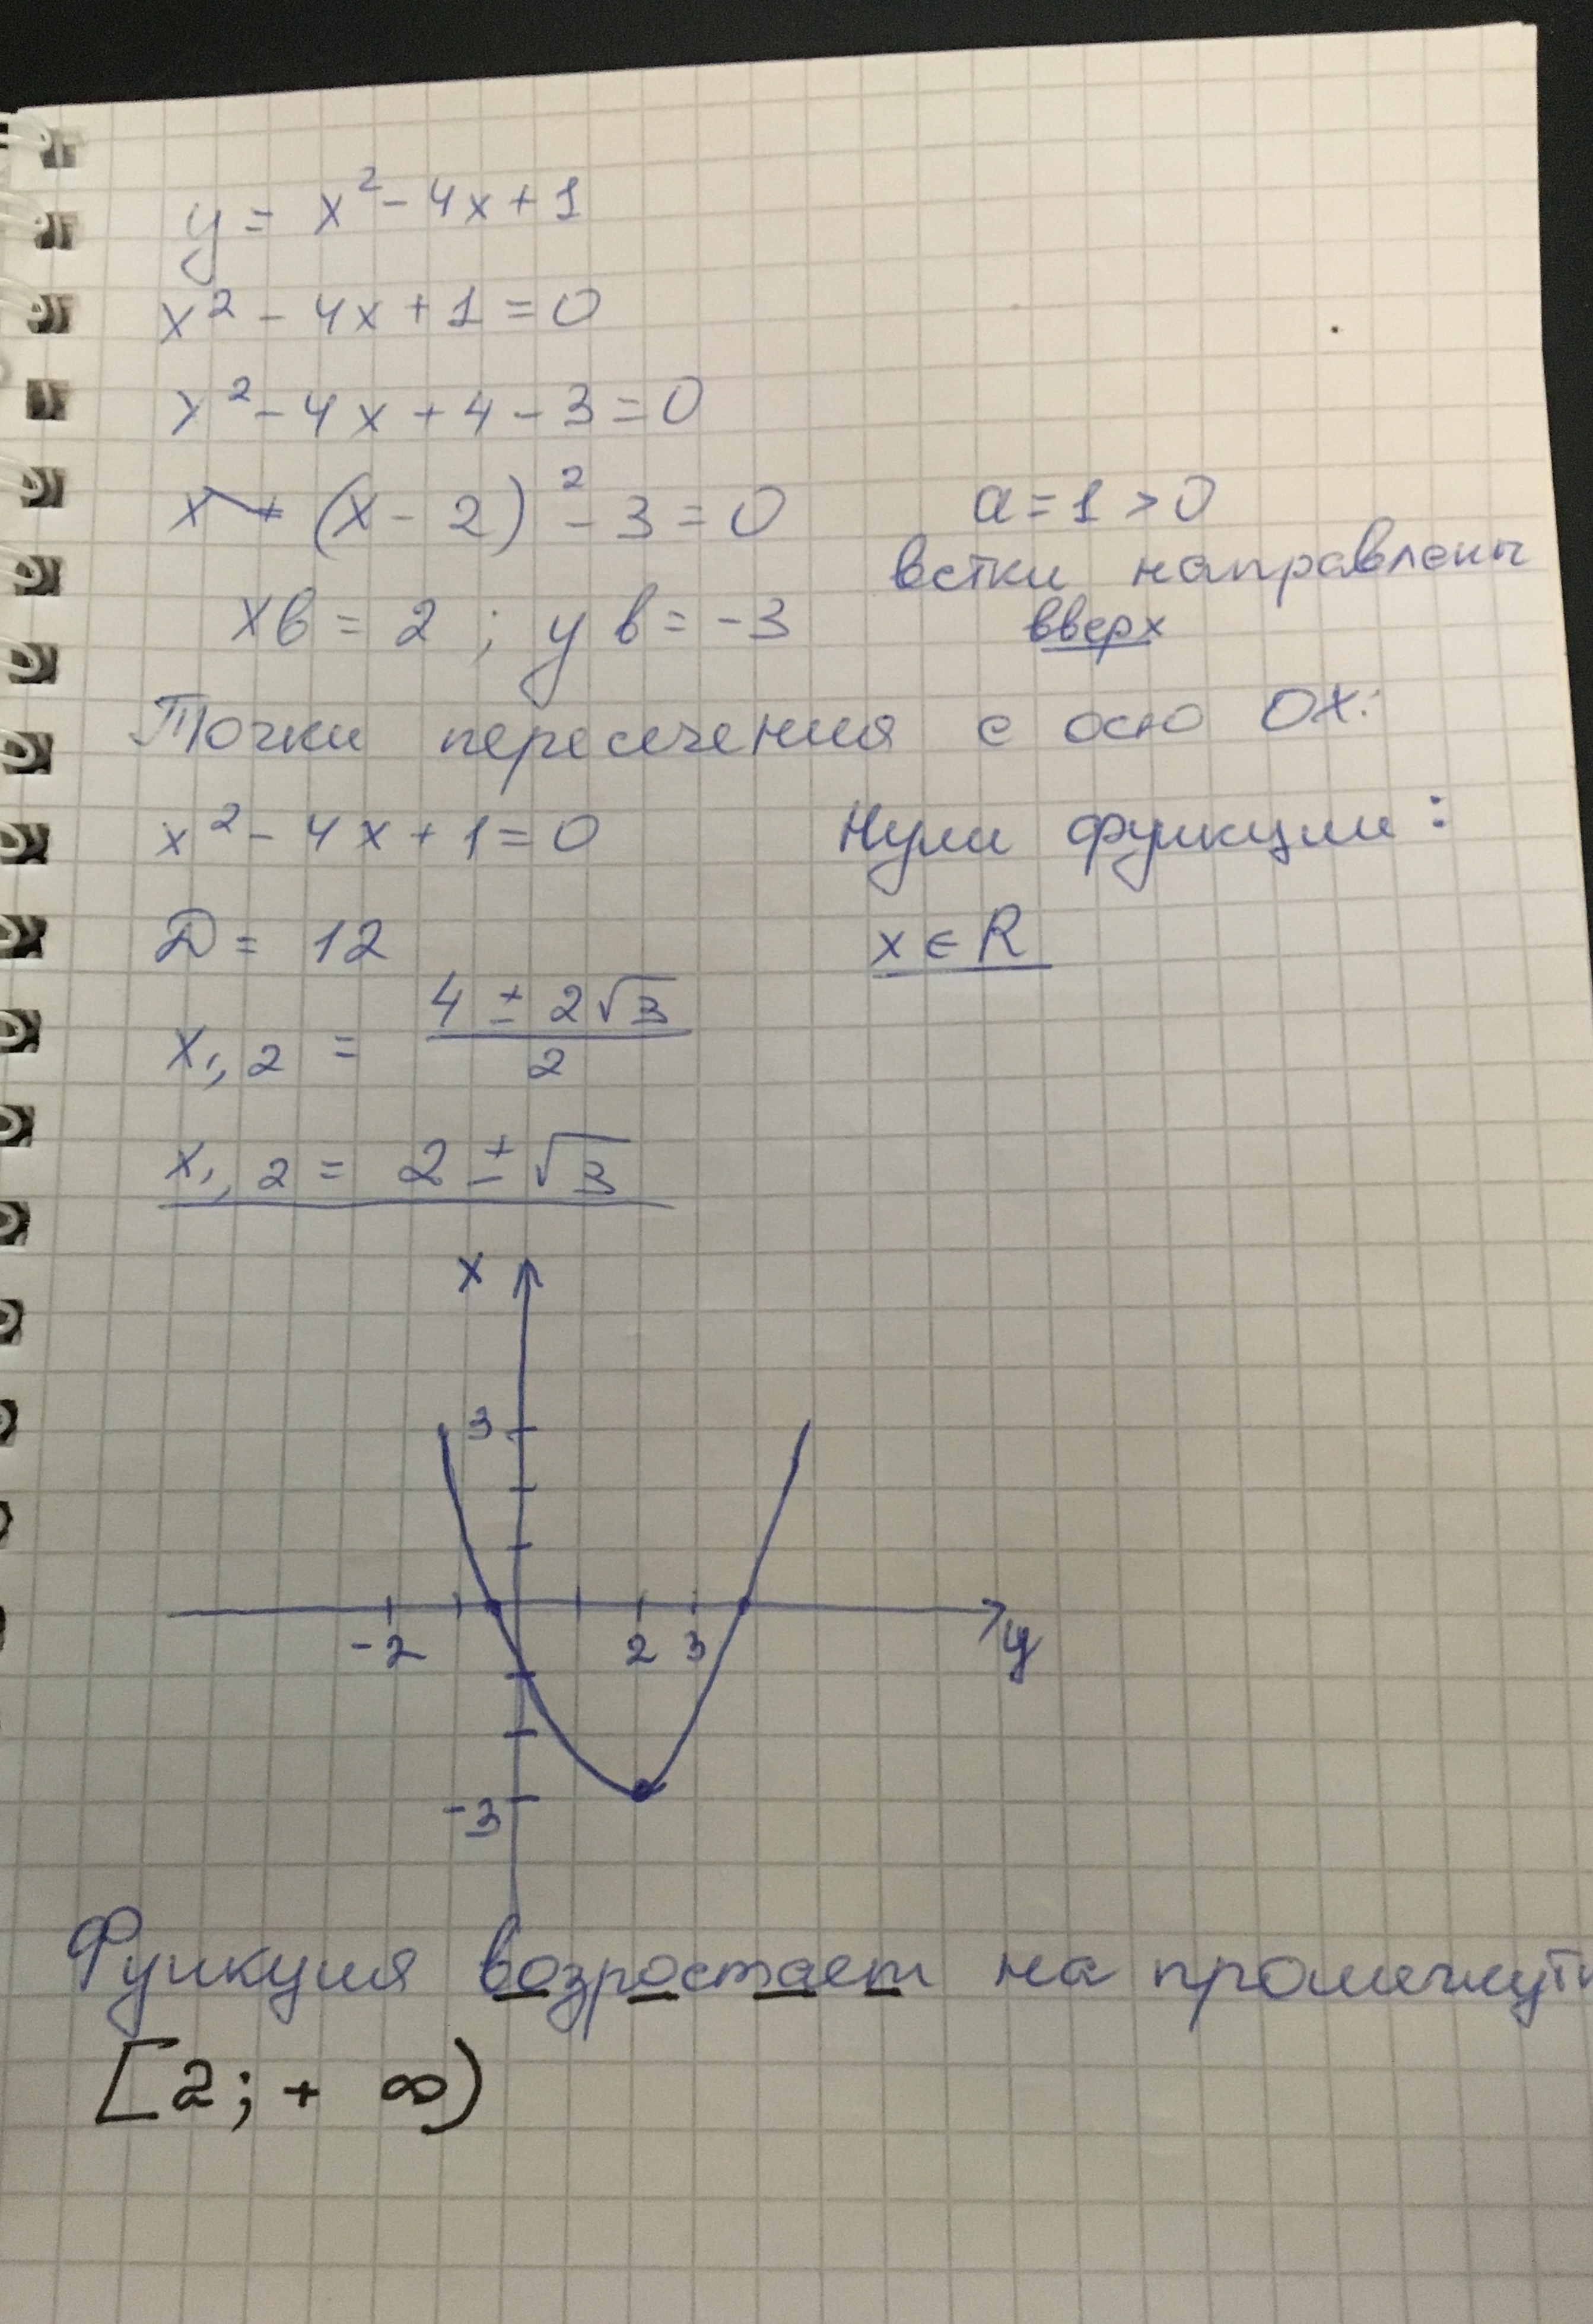 y = x² - 4x + 1
x² - 4x + 1 = 0
x² - 4x + 4 - 3 = 0
(x - 2)² - 3 = 0
a = 1 > 0
ветки направлены
вверх
xв = 2 ; yв = -3
Точки пересечения с осю OX:
x² - 4x + 1 = 0
Нули функции:
D = 12
x ∈ R
x₁,₂ = (4 ± 2√3)/2
x₁,₂ = 2 ± √3
x
3
-2 2 3
y
-3
Функция возростает на промежутк
[2; + ∞)